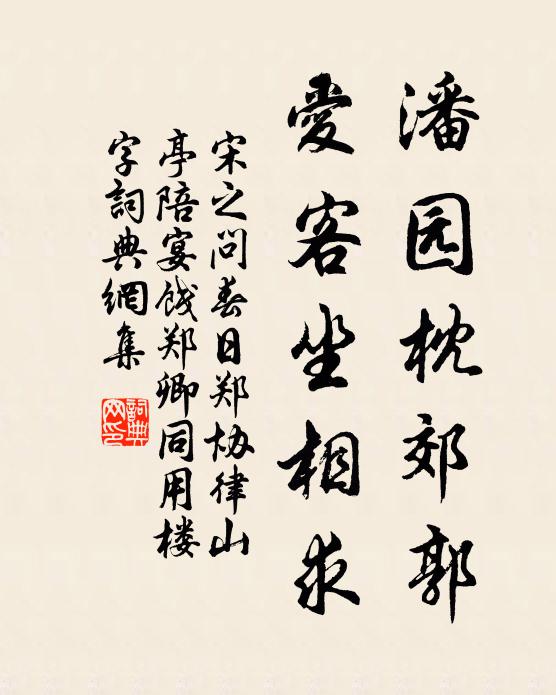 潘园枕郊郭
愛客坐相求
宋之问春日郑协律山
亭陪宴餞郑卿同用楼
字詞典網集
詞典
网印